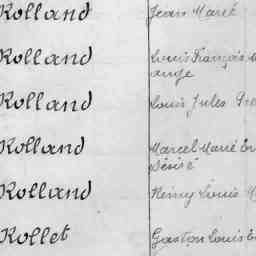 Rolland Jean Marie
Rolland Louis François
ange
Rolland Louis Jules
Rolland Marcel Marie
Désiré
Rolland Rémy Louis
Rollet Gaston Louis